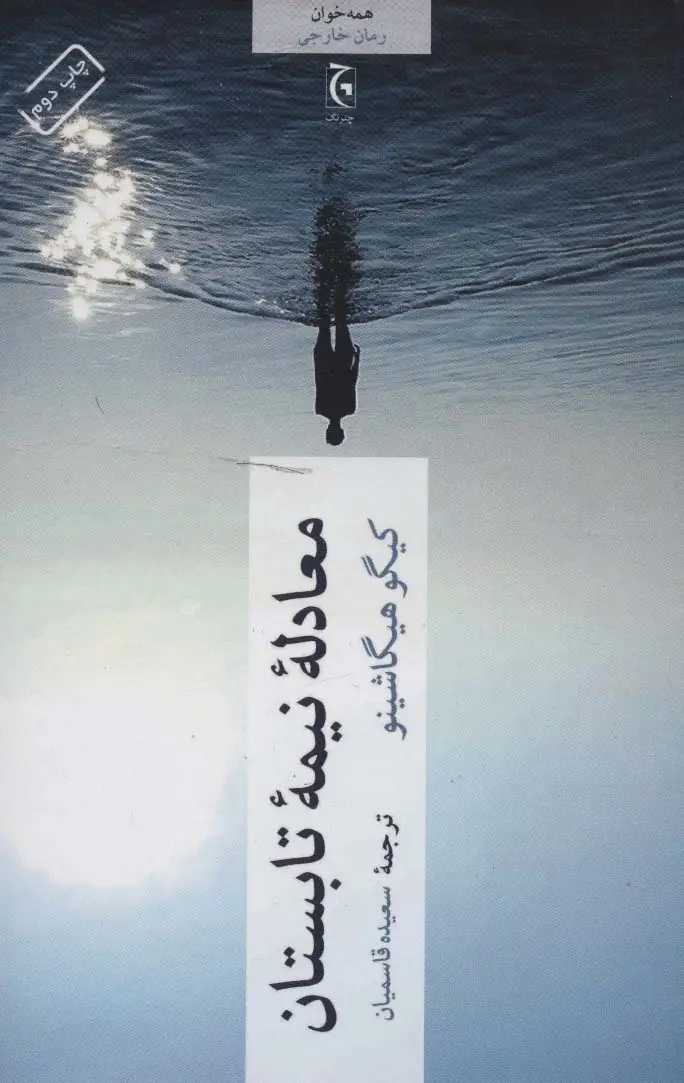 همه‌خوان
رمان خارجی
چترنگ
چاپ دوم
معادلهٔ نیمهٔ تابستان
کیگو هیگاشینو
ترجمهٔ سعیده قاسمیان